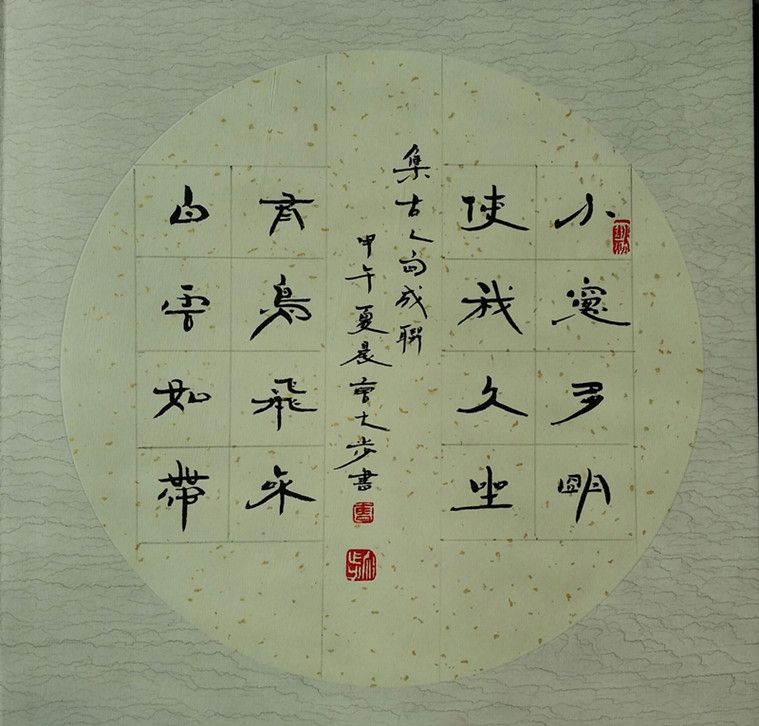 小窻多明
使我久坐
集古人句成聯
甲午夏晨大步書
有鳥飛來
白雲如帶